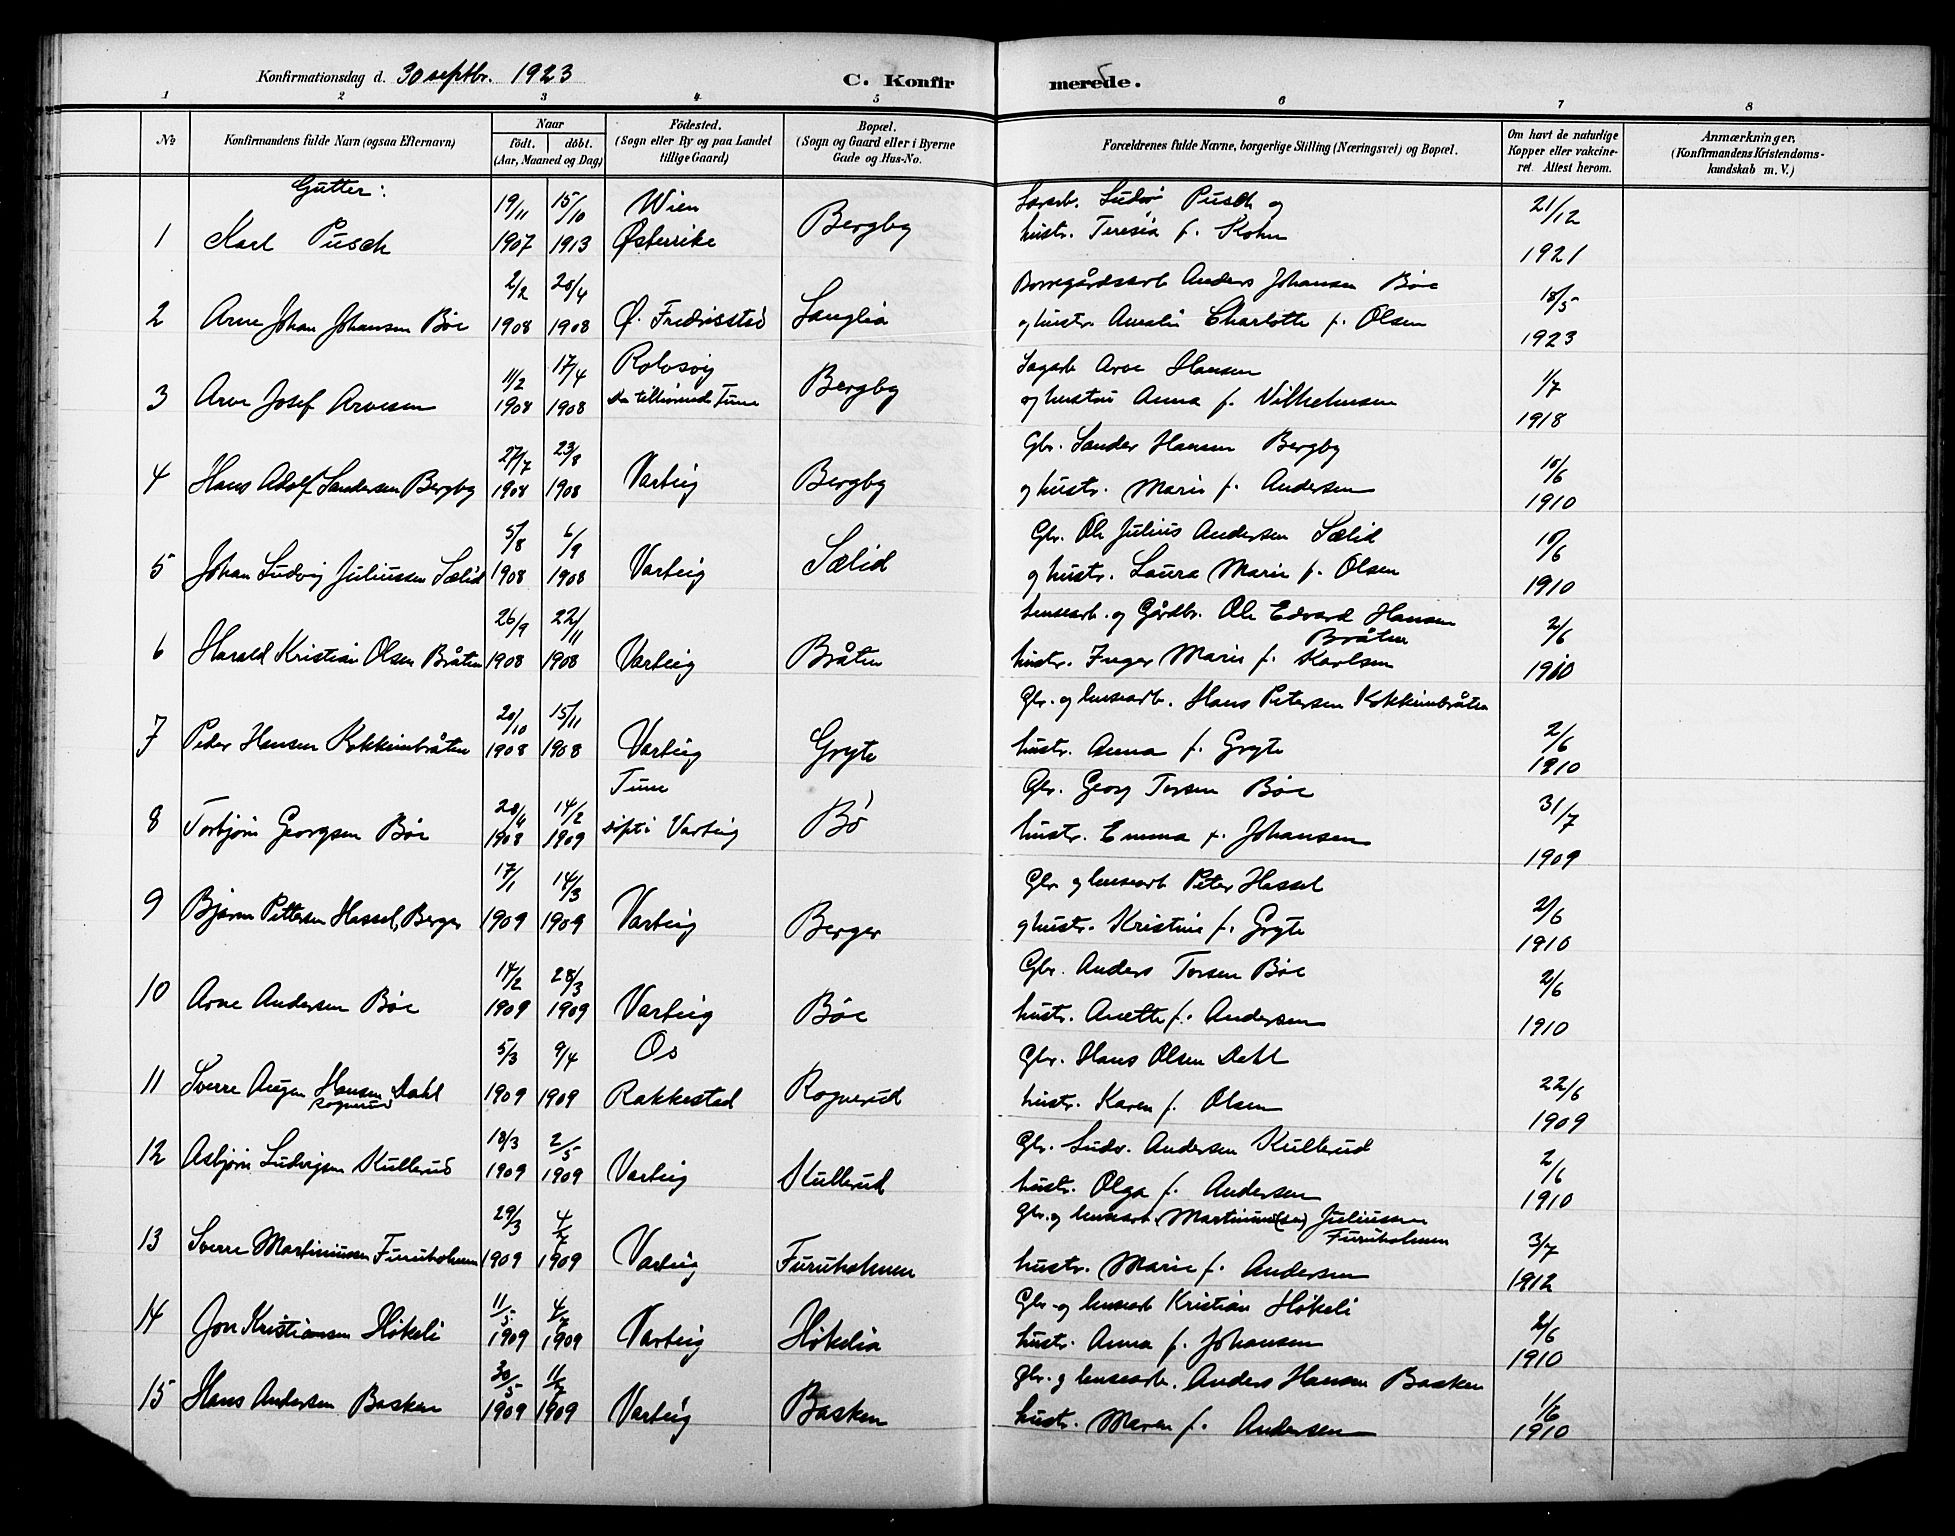 Konfirmationsdag d. 30 septbr. 1923
C. Konfirmerede.
1 2 3 4 5 6 7 8
No Konfirmandens fulde Navn (ogsaa Efternavn) Naar født. døbt. (Aar, Maaned og Dag) Fødested. (Sogn eller By og paa Landet tillige Gaard) Bopæl. (Sogn og Gaard eller i Byerne Gade og Hus-No. Forældrenes fulde Navne, borgerlige Stilling (Næringsvei) og Bopæl. Om havt de naturlige Kopper eller vakcineret. Attest herom. Anmærkninger, (Konfirmandens Kristendomskundskab m. V.)
Gutter:
19/11 15/10 Wien Ludv Pusch og 21/12
1 Karl Pusch 1907 1913 Østerrike Bergby hustr. Teresia f. Kohn 1921
2/2 20/4 Borregårdsarb Anders Johansen Böe 18/5
2 Arne Johan Johansen Böe 1908 1908 Ø. Fredrikstad Langlia og hustr. Amalie Charlotte f. Olsen 1923
11/2 17/4 Rolvsøy Sagarb Arve Hansen 1/7
3 Arve Josef Arvesen 1908 1908 Da tilhørende Tune Bergby og hustru Anna f. Vilhelmsen 1918
27/7 23/8 Gbr. Sander Hansen Bergby 10/6
4 Hans Adolf Sandersen Bergby 1908 1908 Varteig Bergby og hustr. Marie f. Andersen 1910
5/8 6/9 Gbr. Ole Julius Andersen Sælid 10/6
5 Johan Ludvig Juliussen Sælid 1908 1908 Varteig Sælid og hustr. Laura Marie f. Olsen 1910
26/9 22/11 Lensearb. og Gårdbr. Ole Edvard Hansen Bråten 2/6
6 Harald Kristian Olsen Bråten 1908 1908 Varteig Bråten hustr. Inger Marie f. Karlsen 1910
20/10 15/11 Gbr. og lensearb. Hans Petersen Kokkimbråten 2/6
7 Peder Hansen Kokkimbråten 1908 1908 Varteig Gryte hustr. Anna f. Gryte 1910
14/2 Tune Gbr. Georg Torsen Böe 31/7
8 Torbjörn Georgsen Böe 1908 1909 døpt i Varteig Bö hustr. Emma f. Johansen 1909
17/1 14/3 Gbr og lensearb Peter Hassel 2/6
9 Bjarne Pettersen Hassel, Berger 1909 1909 Varteig Berger og hustr. Kristine f. Gryte 1910
14/2 28/3 Gbr. Anders Torsen Böe 2/6
10 Arne Andersen Böe 1909 1909 Varteig Böe hustr. Anette f. Andersen 1910
5/3 9/4 Os Gbr. Hans Olsen Dahl 22/6
11 Sverre Hansen Dahl Rognerud 1909 1909 Rakkestad Rognerud hustr. Karen f. Olsen 1909
18/3 2/5 Gbr. Ludv. Andersen Kullerud 2/6
12 Asbjörn Ludvigsen Kullerud 1909 1909 Varteig Kullerud hustr. Olga f. Andersen 1910
29/3 4/7 Gbr. og lensearb. Martinius(sen) Juliussen Furuholmen 3/7
13 Sverre Martiniussen Furuholmen 1909 1909 Varteig Furuholmen hustr. Marie f. Andersen 1912
11/5 4/7 Gbr. og lensearb Kristian Hökeli 2/6
14 Jon Kristiansen Hökeli 1909 1909 Varteig Hökelia hustr. Anna f. Johansen 1910
30/5 11/7 Gbr. og lensearb. Anders Hansen Basken 1/6
15 Hans Andersen Basken 1909 1909 Varteig Basken hustr. Maren f. Andersen 1910